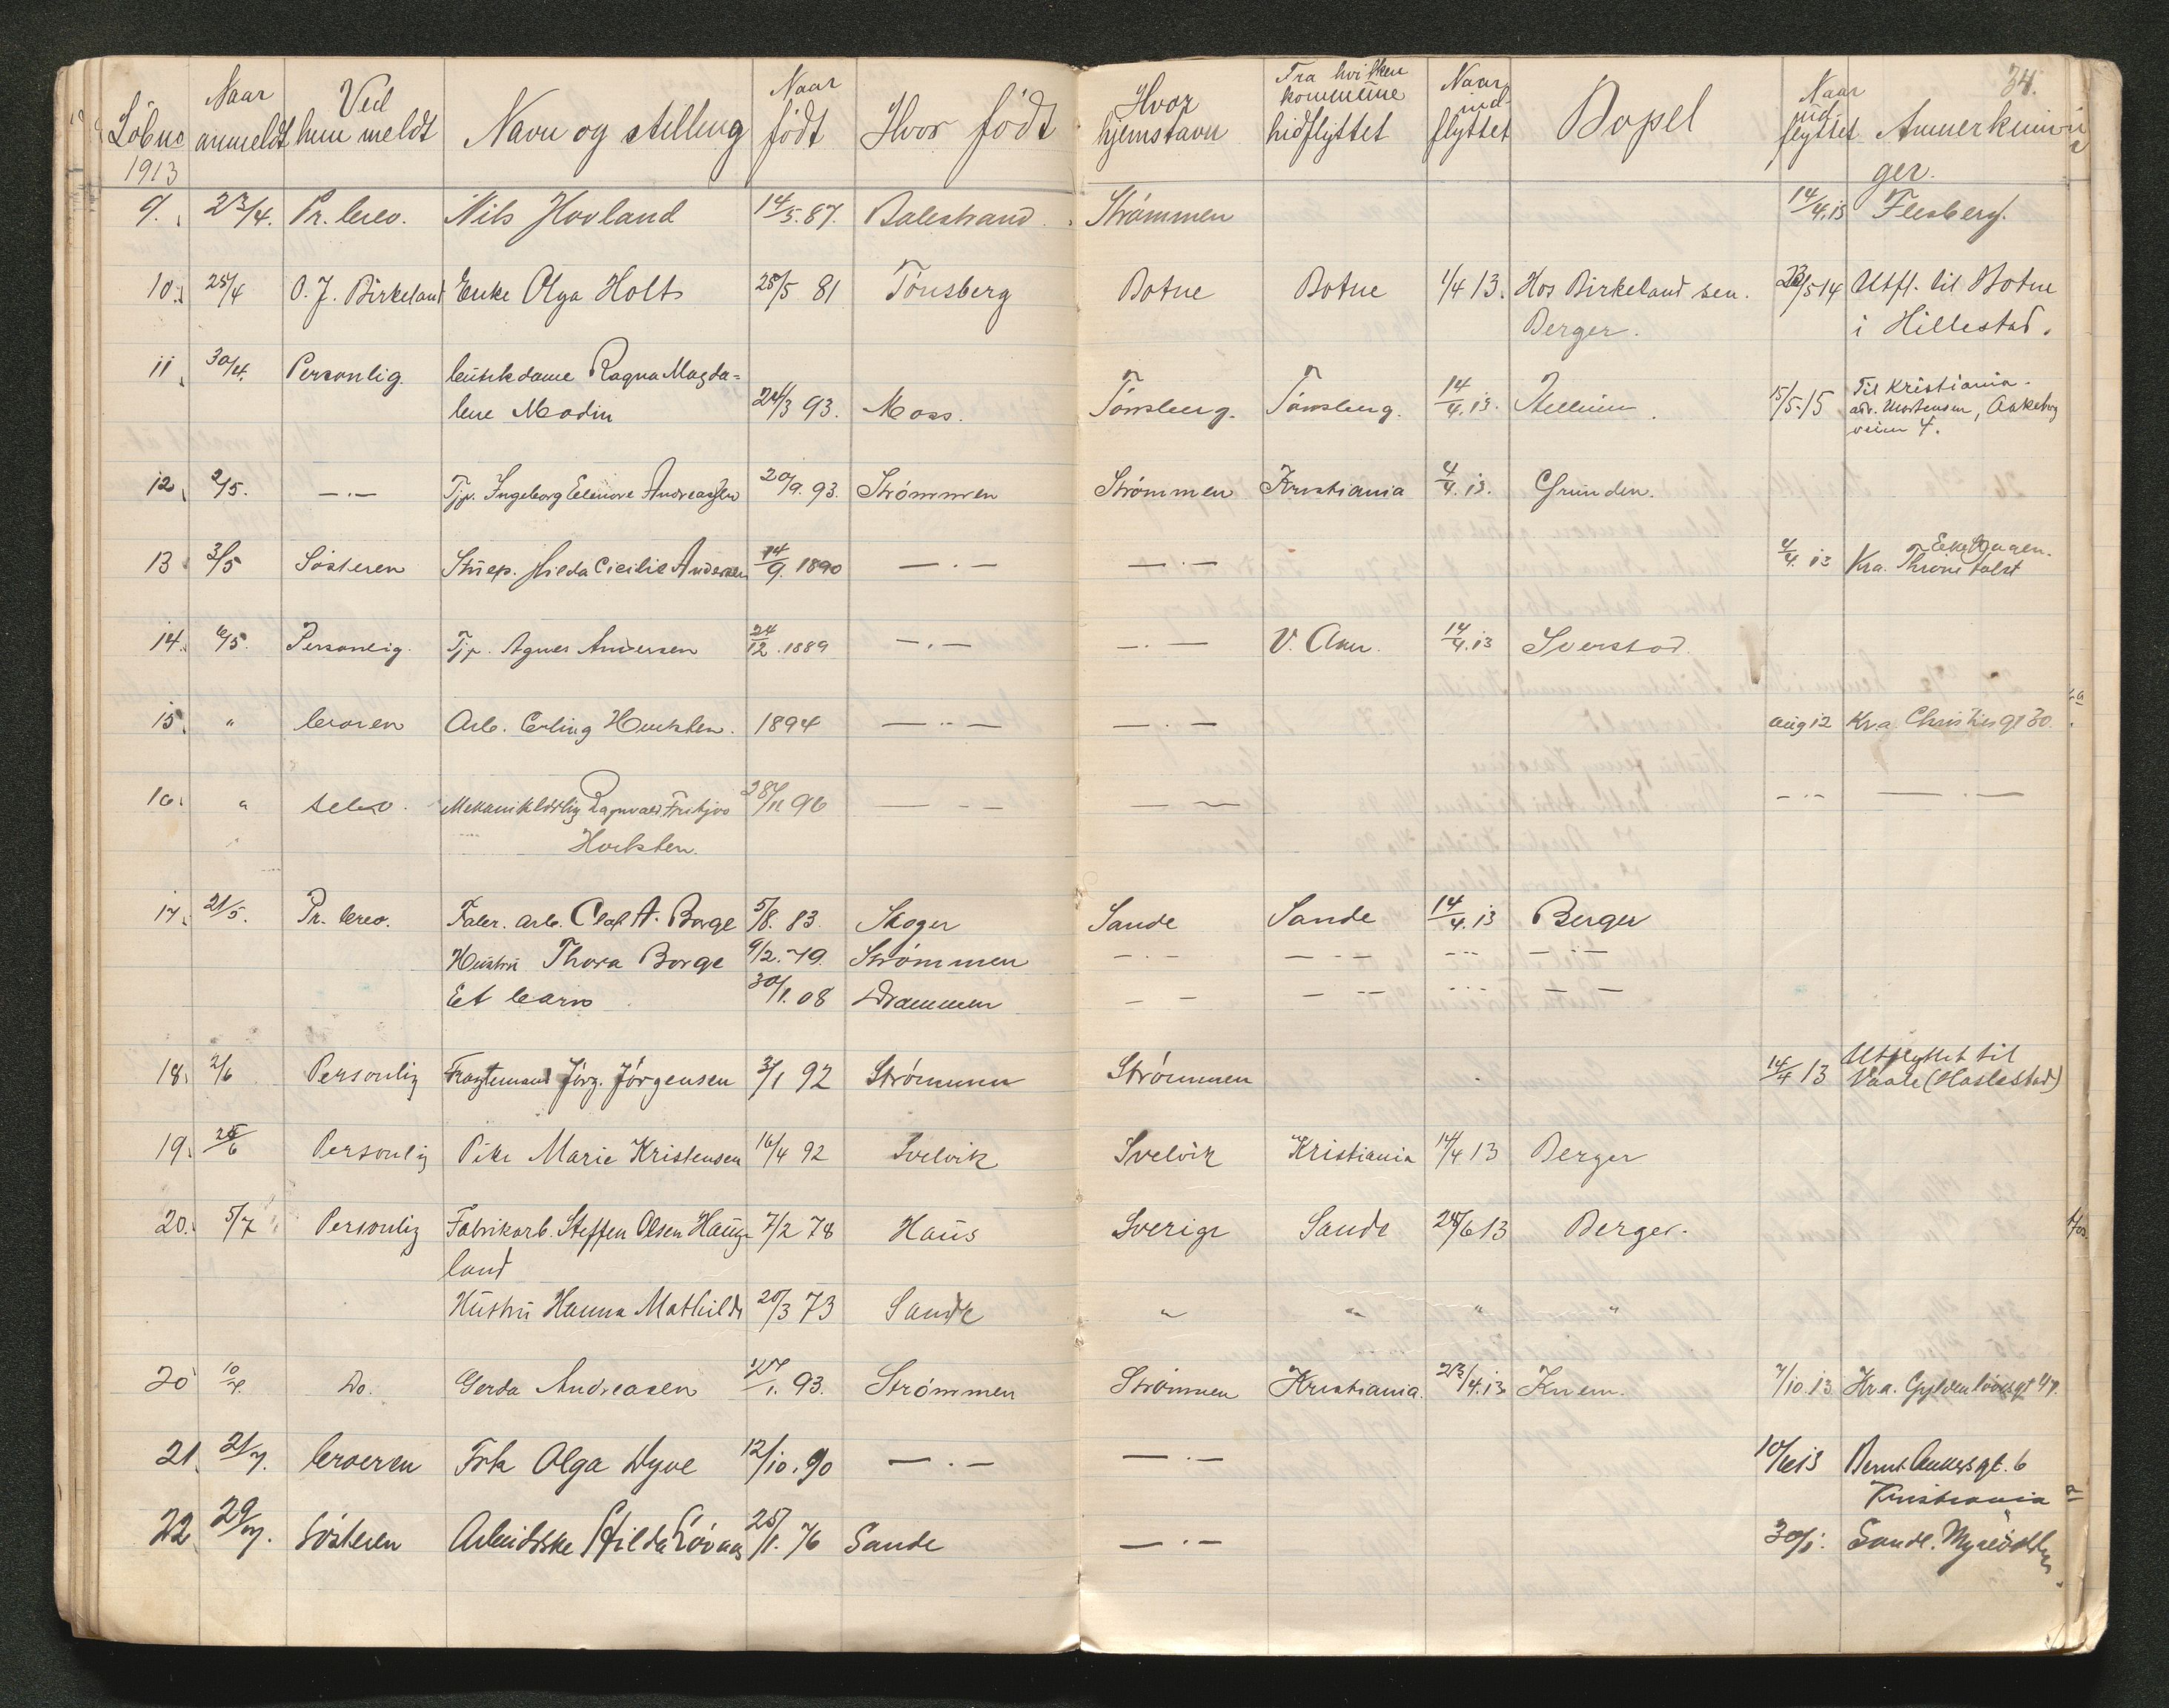 34.
Löbno Naar anmeldt Ved hvem meldt Navn og stilling Naar født Hvor født Hvor hjemstavn Fra hvilken kommune hidflyttet Naar indflyttet Bopel Naar udflyttet Anmerkninger.
1913
9. 23/4. Pr. brev. Nils Hovland 14/5.87. Balestrand Strømmen 14/4.13 Flesberg.
10. 25/4 O. J. Birkeland Enke Olga Holt 25/5 81 Tönsberg Botne Botne 1/4 13. Hos Birkeland sen. 23/5 14 Utfl. til Botne
Berger. i Hillestad.
11. 30/4. Personlig Ragna Magda=
lene Modin 24/3 93. Moss. Tönsberg. Tönsberg. 14/4.13. 15/5-15 Til Kristiania.
adr. Mortensen, Aakeberg
veien 4.
12. 2/5. —.— Tjp. Ingeborg Elenore Andreassen 20/9.93. Strömmen Strömmen Kristiania 4/4.13. Grunden.
13. 3/5 Sösteren Hilda Cicilie Andersen 14/9.1890 —.— —.— 4/4.13 Kra.
14. 6/5. Personlig. Tjp. Agnes Andersen 24/12.1889 —.— —.— V. Aker. 14/4.13 Sverstad.
15. " broren Arb. Erling Horksten. 1894 —..— —.— aug 12 Kr.a. Christies gt 30.
16. " selv. Mekanikklærling Ragnvald Fritjov 28/11 96 — - — — — -..- —.—
Horksten.
17. 21/5. Pr. brev. Fabr. arb. Olaf A. Borge 5/8.83. Skoger Sande Sande 14/4.13 Berger
Hustru Thora Borge 9/2.79. Strömmen —.— —.— -.- —.—
Et barn 30/1.08 Drammen — — — -- ... — —
18. 2/6 Personlig Fragtemand Jörg. Jörgensen 3/1 92 Strömmen Strömmen 14/4 13 Utflyttet til
Vaale (Haslestad)
19. 25/6 Personlig Pike Marie Kristensen 16/4 92 Svelvik Svelvik Kristiania 14/4 13 Berger
20. 5/7 Personlig Fabrikarb. Steffen Olsen Haug- 7/2 78 Haus Sverige Sande 28/6 13 Berger.
land
Hustru Hanna Mathilde 20/3 73 Sande " " " "
20 10/7. Do. Gerda Andreasen 27/1.93. Strömmen Strömmen Kristiania. 23/4.13 Knem. 7/10.13. Kr.a. Gyldenlövesgt 47.
21. 21/7. broeren Frk Olga Dyve 12/10.90 —.— —.— 10/6 13 Bernt Ankersgt. 6
Kristiania
22. 29/7. Sösteren Arbeidske Hilda Lövaas 25/1.76 Sande —.— 30/1. Sande.